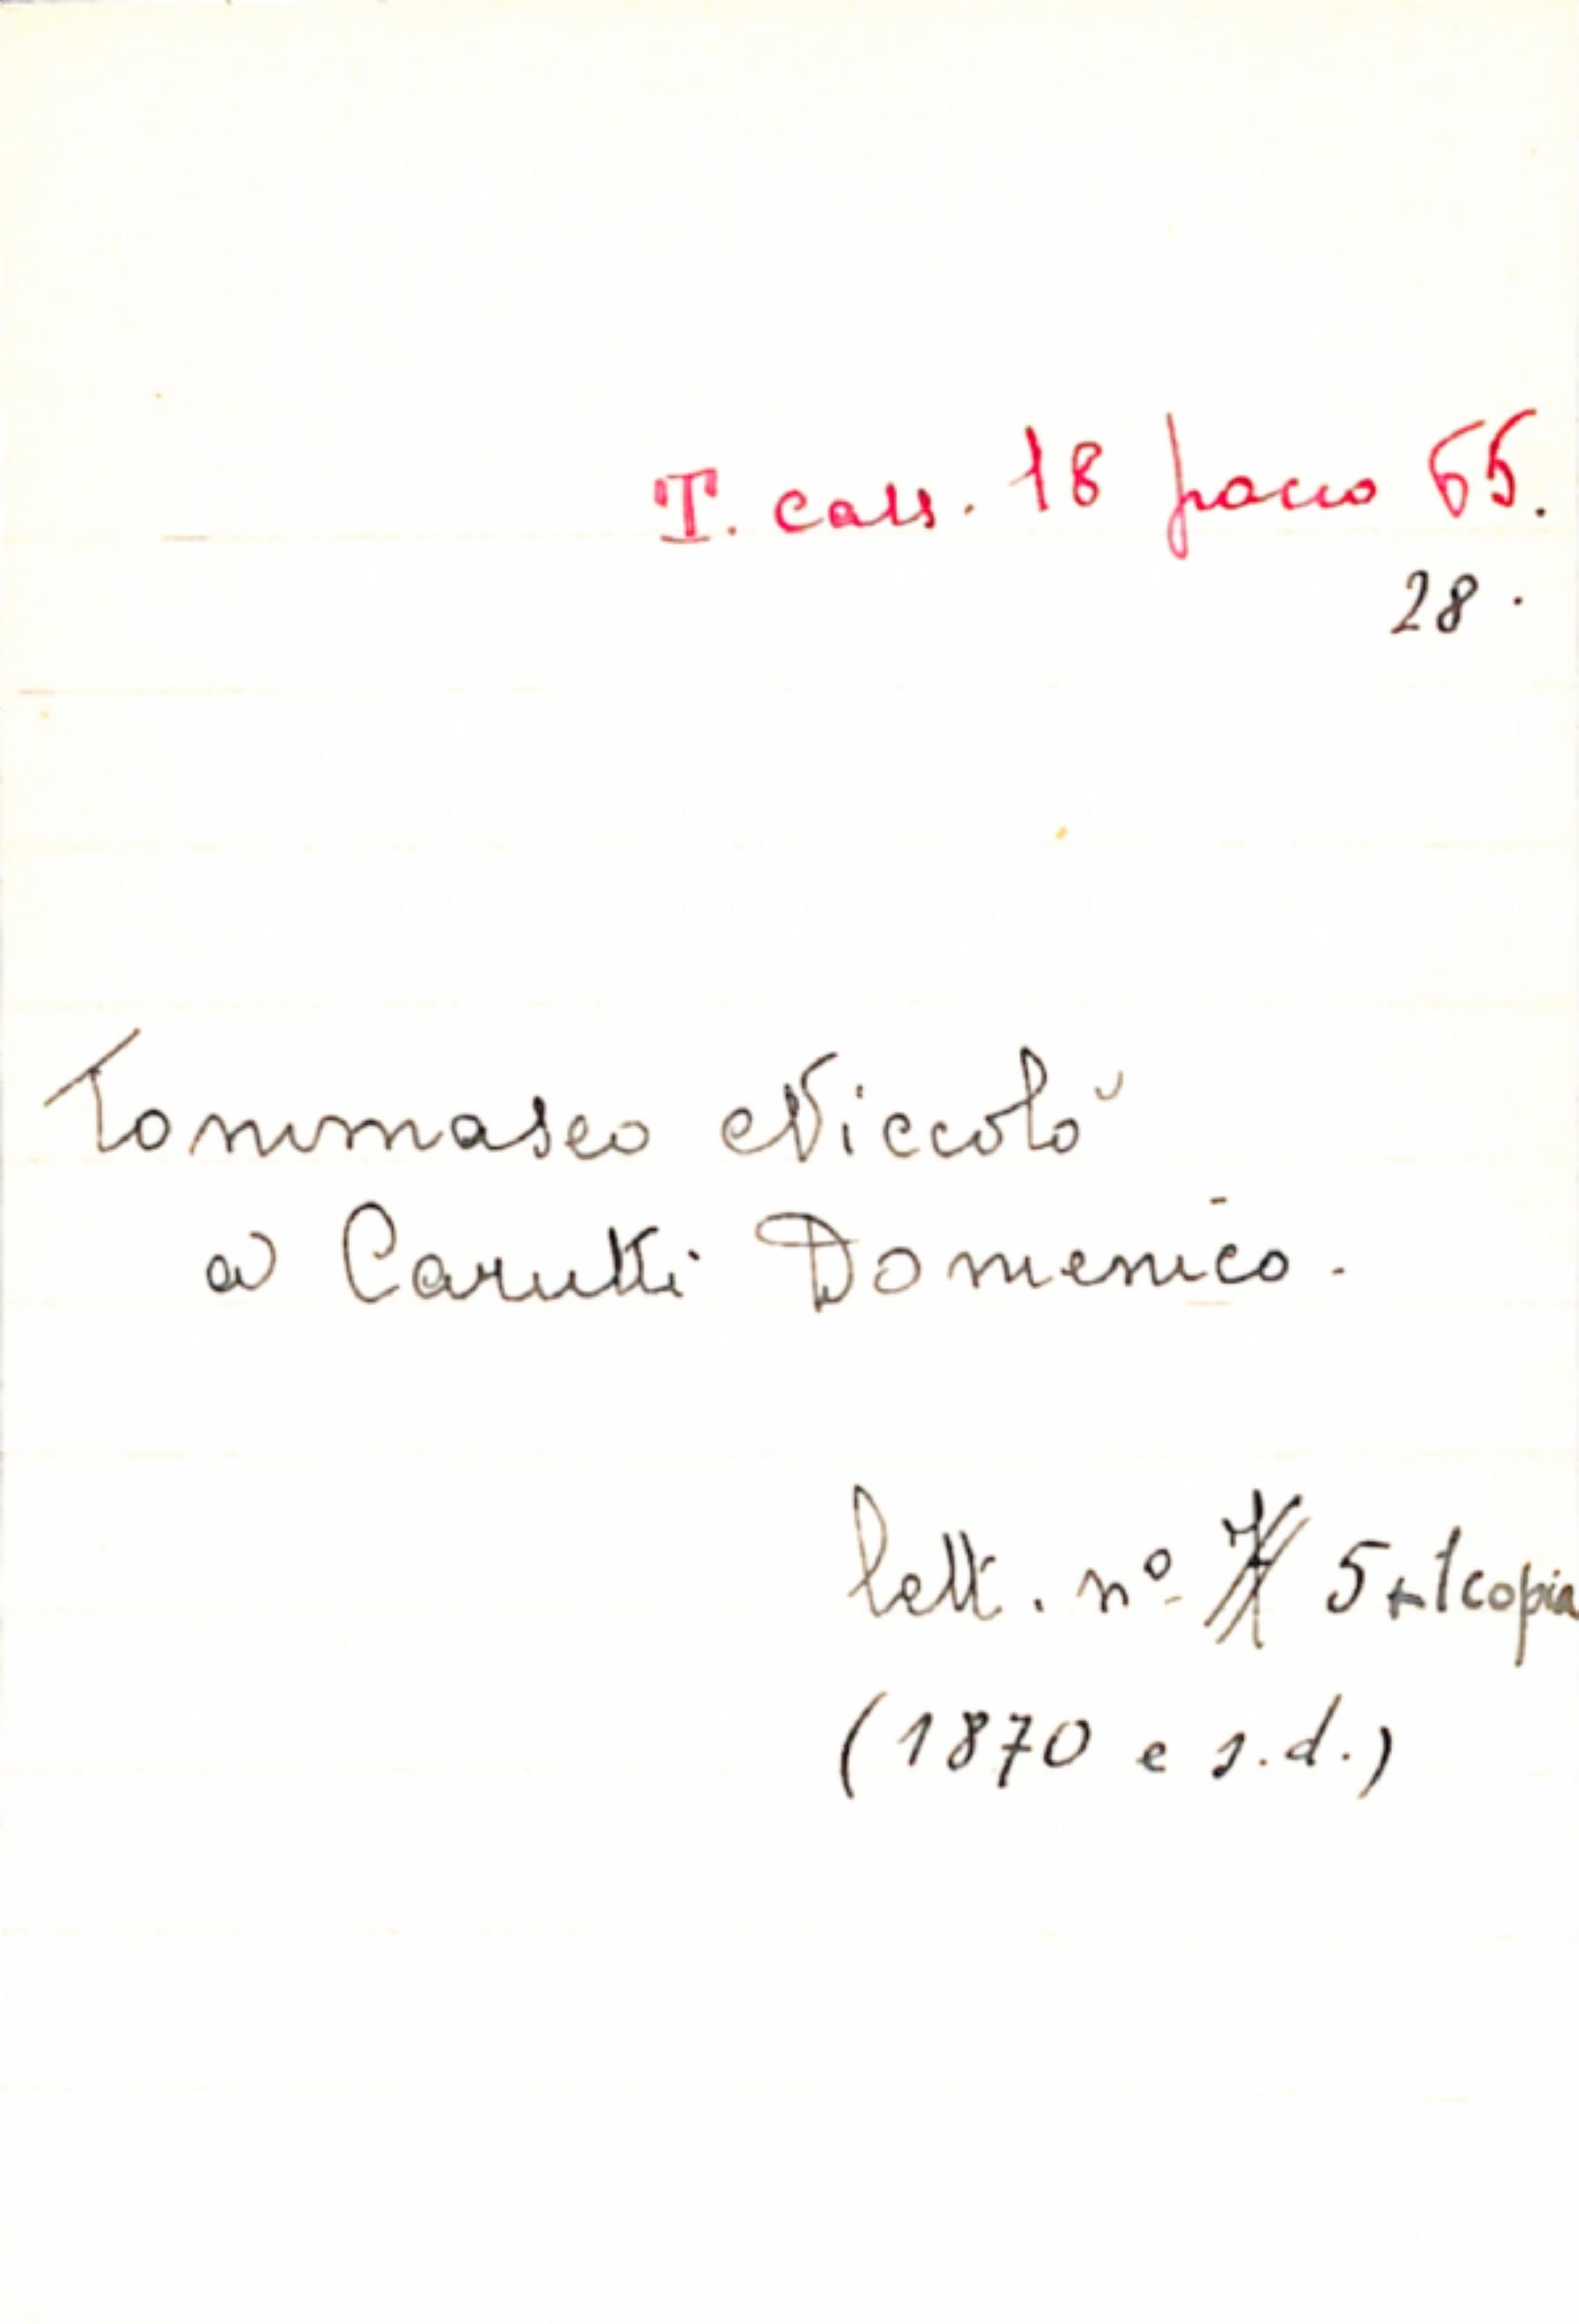 T. cass. 18 pacco 65.
28.
Tommaseo Niccolò
a Carutti Domenico.
lett. nº 5 + 1 copia
(1870 e s.d.)